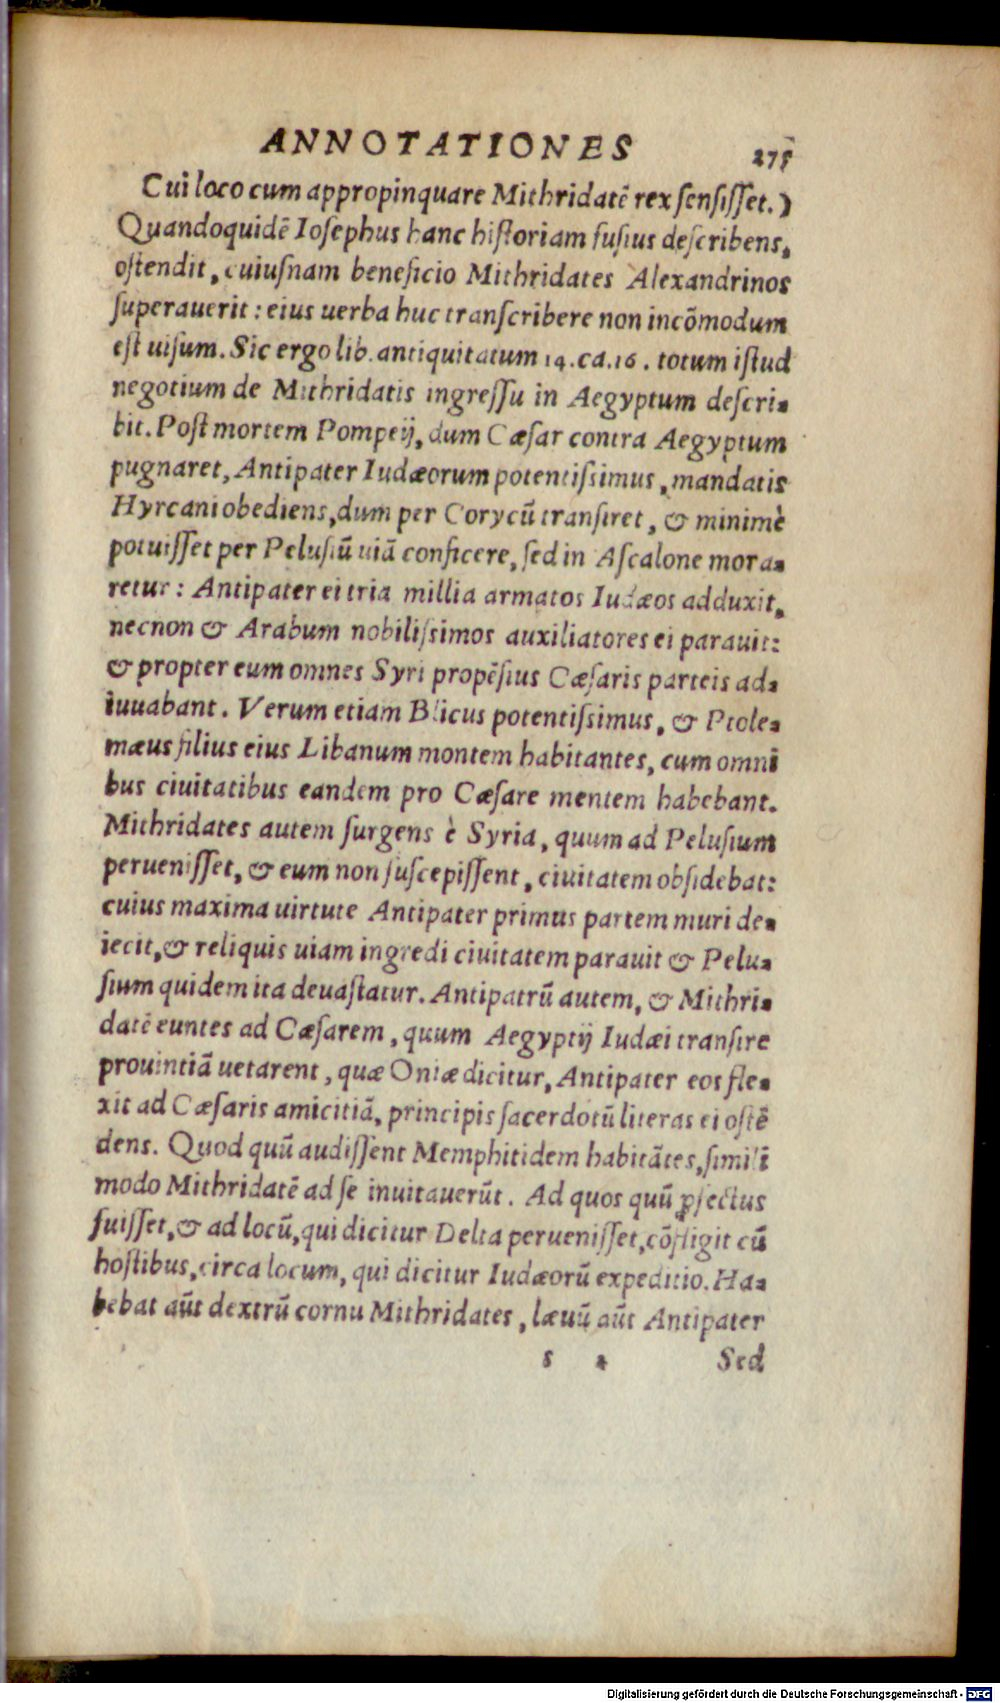 ANNOTATIONES 275
Cui loco cum appropinquare Mithridatē rex sensisset.)
Quandoquidē Iosephus hanc historiam fusius describens,
ostendit, cuiusnam beneficio Mithridates Alexandrinos
superauerit: eius uerba huc transcribere non incōmodum
est uisum. Sic ergo lib. antiquitatum 14. ca. 16. totum istud
negotium de Mithridatis ingressu in Aegyptum descri-
bit. Post mortem Pompeij, dum Cæsar contra Aegyptum
pugnaret, Antipater Iudæorum potentissimus, mandatis
Hyrcani obediens, dum per Corycū transiret, & minimè
potuisset per Pelusiū uiā conficere, sed in Ascalone mora-
retur: Antipater ei tria millia armatos Iudæos adduxit,
necnon & Arabum nobilissimos auxiliatores ei parauit:
& propter eum omnes Syri propēsius Cæsaris parteis ad-
iuuabant. Verum etiam Blicus potentissimus, & Ptole-
mæus filius eius Libanum montem habitantes, cum omni
bus ciuitatibus eandem pro Cæsare mentem habebant.
Mithridates autem surgens è Syria, quum ad Pelusium
peruenisset, & eum non suscepissent, ciuitatem obsidebat:
cuius maxima uirtute Antipater primus partem muri de-
iecit, & reliquis uiam ingredi ciuitatem parauit & Pelu-
sium quidem ita deuastatur. Antipatrū autem, & Mithri-
datē euntes ad Cæsarem, quum Aegyptij Iudæi transire
prouintiā uetarent, quæ Oniæ dicitur, Antipater eos fle-
xit ad Cæsaris amicitiā, principis sacerdotū literas ei ostē
dens. Quod quū audissent Memphitidem habitātes, simili
modo Mithridatē ad se inuitauerūt. Ad quos quū ꝓfectus
fuisset, & ad locū, qui dicitur Delta peruenisset, cōfligit cū
hostibus, circa locum, qui dicitur Iudæorū expeditio. Ha-
bebat aūt dextrū cornu Mithridates, læuū aūt Antipater
s 2 Sed
Digitalisierung gefördert durch die Deutsche Forschungsgemeinschaft - DFG